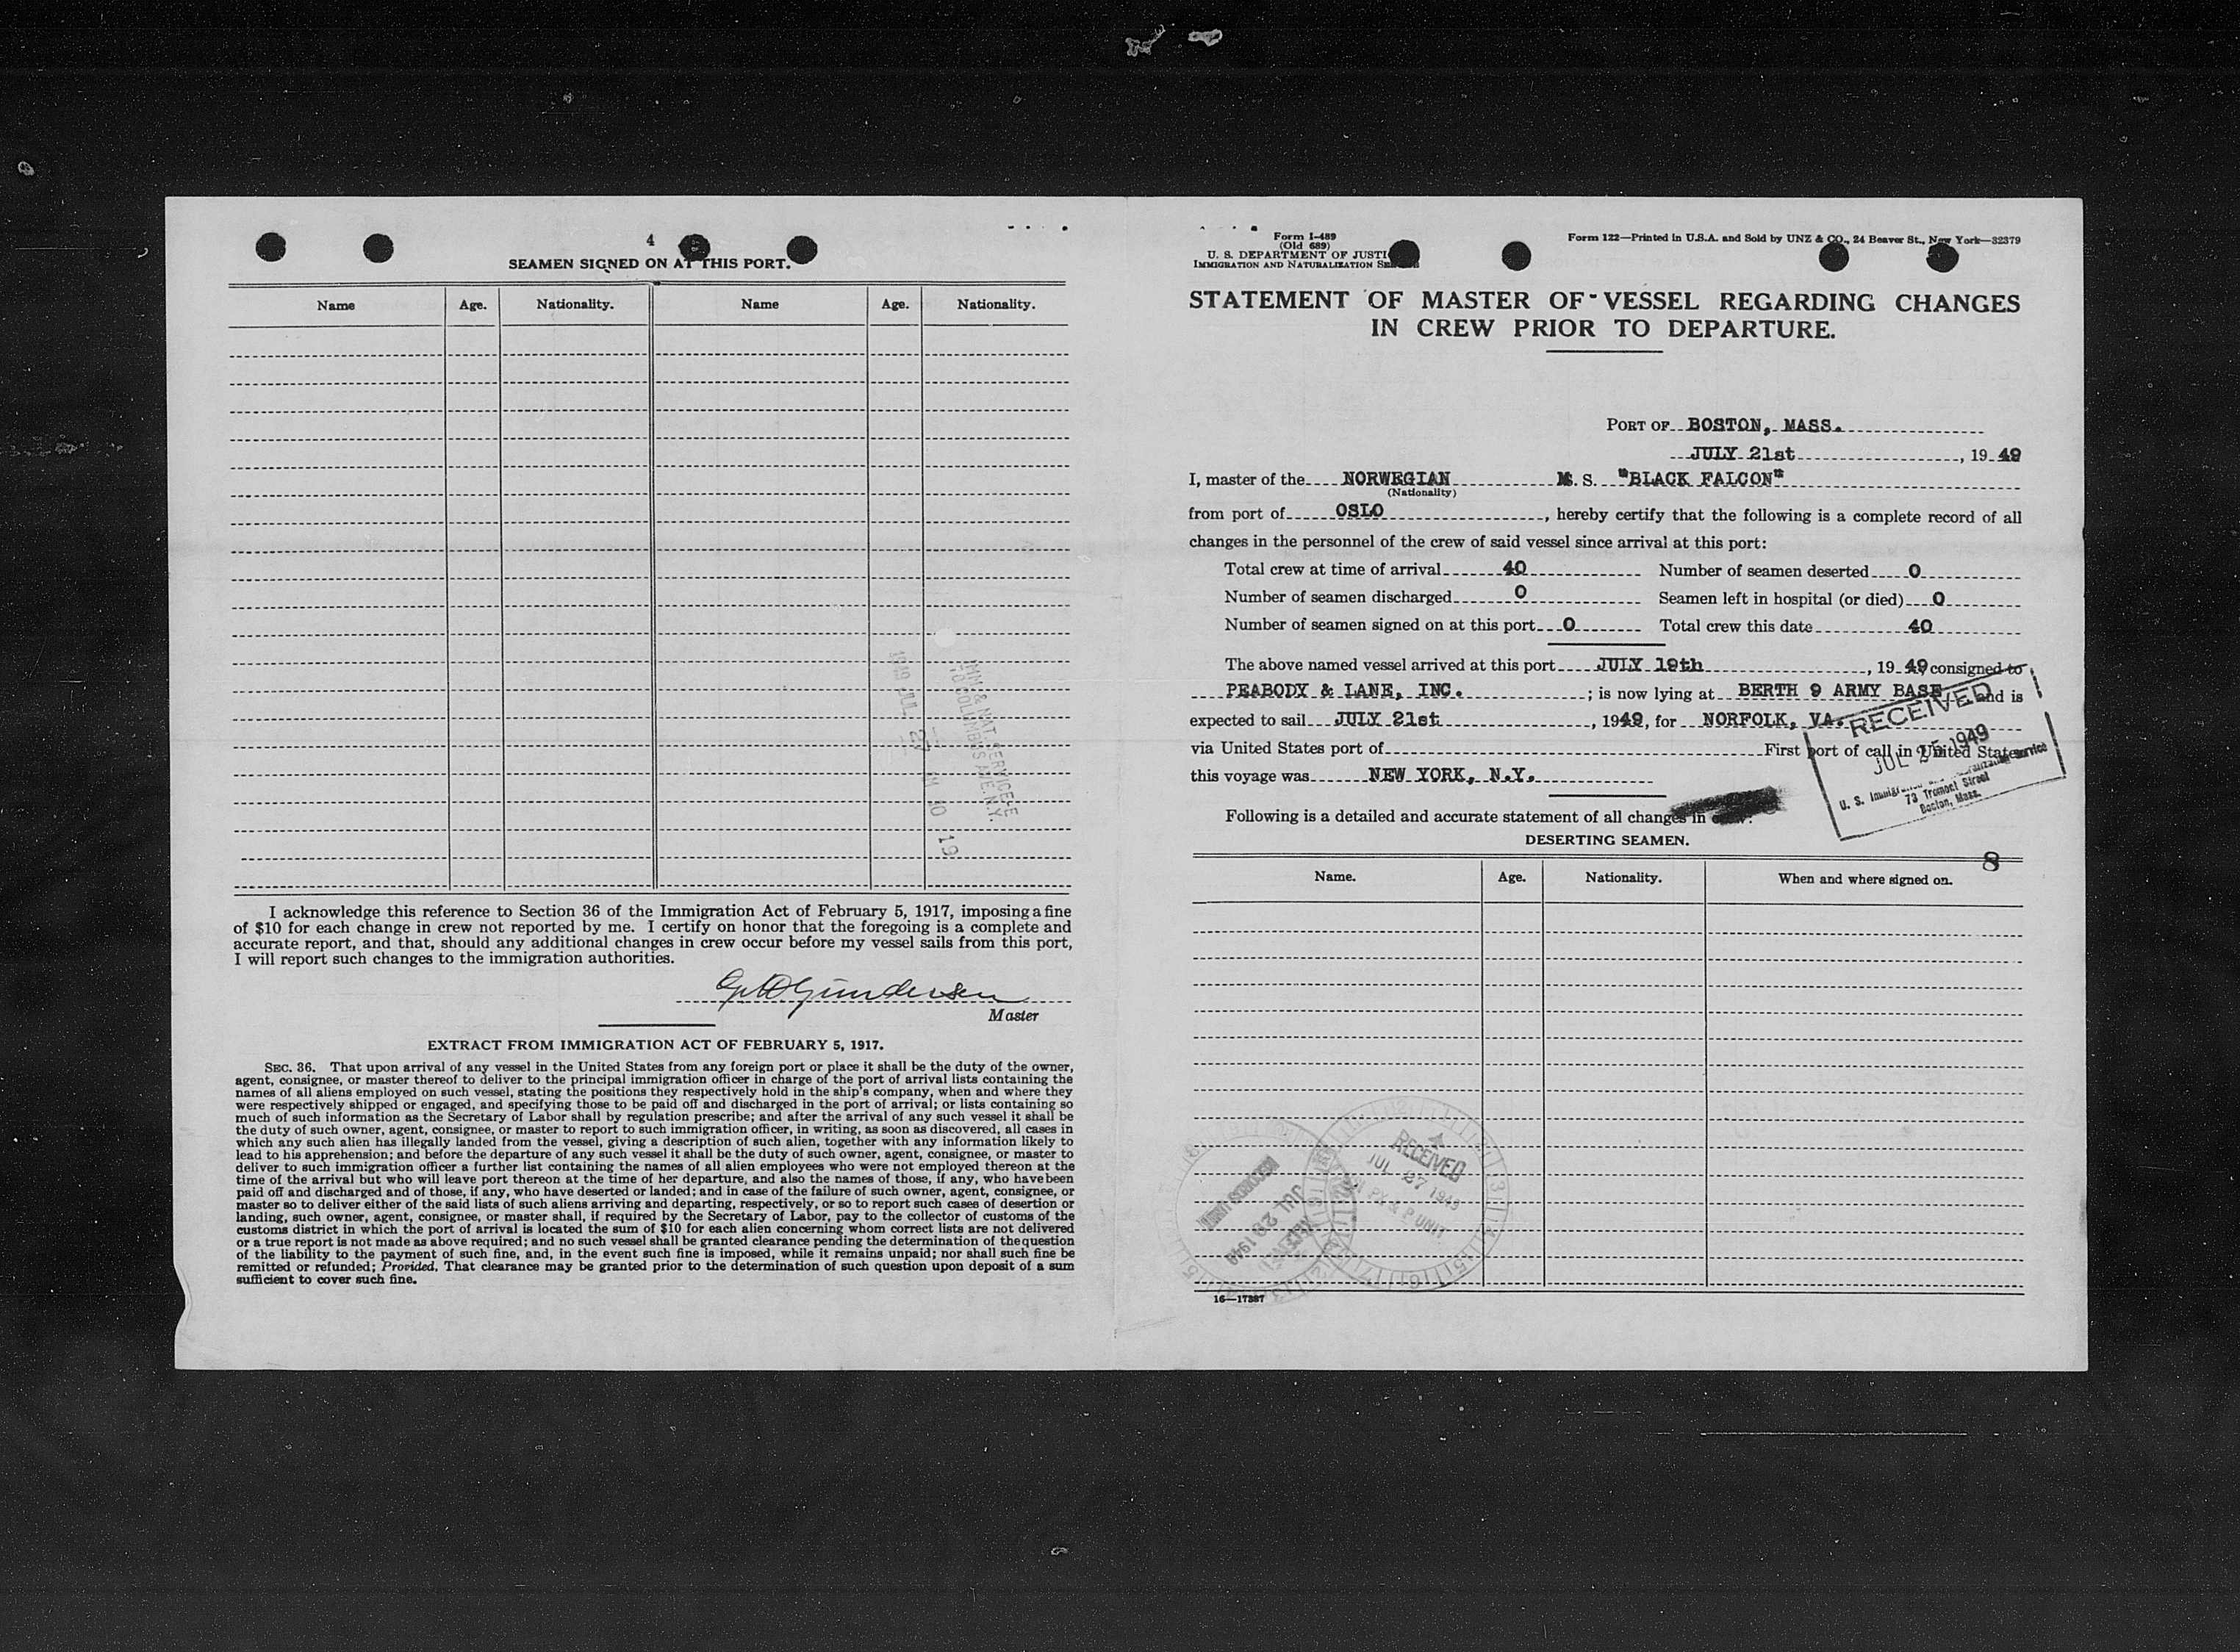 4
SEAMEN SIGNED ON AT THIS PORT.
Name Age. Nationality. Name Age. Nationality.
IMM & NAT. SERVICE-E
70 COLUMBUS AVE. N.Y.
1949 JUL 27 10 19
I acknowledge this reference to Section 36 of the Immigration Act of February 5, 1917, imposing a fine
of $10 for each change in crew not reported by me. I certify on honor that the foregoing is a complete and
accurate report, and that, should any additional changes in crew occur before my vessel sails from this port,
I will report such changes to the immigration authorities.
Gundersen
Master
EXTRACT FROM IMMIGRATION ACT OF FEBRUARY 5, 1917.
SEC. 36. That upon arrival of any vessel in the United States from any foreign port or place it shall be the duty of the owner,
agent, consignee, or master thereof to deliver to the principal immigration officer in charge of the port of arrival lists containing the
names of all aliens employed on such vessel, stating the positions they respectively hold in the ship's company, when and where they
were respectively shipped or engaged, and specifying those to be paid off and discharged in the port of arrival; or lists containing so
much of such information as the Secretary of Labor shall by regulation prescribe; and after the arrival of any such vessel it shall be
the duty of such owner, agent, consignee, or master to report to such immigration officer, in writing, as soon as discovered, all cases in
which any such alien has illegally landed from the vessel, giving a description of such alien, together with any information likely to
lead to his apprehension; and before the departure of any such vessel it shall be the duty of such owner, agent, consignee, or master to
deliver to such immigration officer a further list containing the names of all alien employees who were not employed thereon at the
time of the arrival but who will leave port thereon at the time of her departure, and also the names of those, if any, who have been
paid off and discharged and of those, if any, who have deserted or landed; and in case of the failure of such owner, agent, consignee, or
master so to deliver either of the said lists of such aliens arriving and departing, respectively, or so to report such cases of desertion or
landing, such owner, agent, consignee, or master shall, if required by the Secretary of Labor, pay to the collector of customs of the
customs district in which the port of arrival is located the sum of $10 for each alien concerning whom correct lists are not delivered
or a true report is not made as above required; and no such vessel shall be granted clearance pending the determination of the question
of the liability to the payment of such fine, and, in the event such fine is imposed, while it remains unpaid; nor shall such fine be
remitted or refunded; Provided, That clearance may be granted prior to the determination of such question upon deposit of a sum
sufficient to cover such fine.
Form I-489
(Old 689)
U. S. DEPARTMENT OF JUSTI
IMMIGRATION AND NATURALIZATION SE
Form 122—Printed in U.S.A. and Sold by UNZ & CO., 24 Beaver St., New York—32379
STATEMENT OF MASTER OF VESSEL REGARDING CHANGES
IN CREW PRIOR TO DEPARTURE.
PORT OF BOSTON, MASS.
JULY 21st, 19 49
I, master of the NORWEGIAN M. S. "BLACK FALCON"
(Nationality)
from port of OSLO, hereby certify that the following is a complete record of all
changes in the personnel of the crew of said vessel since arrival at this port:
Total crew at time of arrival 40 Number of seamen deserted 0
Number of seamen discharged 0 Seamen left in hospital (or died) 0
Number of seamen signed on at this port 0 Total crew this date 40
The above named vessel arrived at this port JULY 19th, 19 49 consigned to
PEABODY & LANE, INC.; is now lying at BERTH 9 ARMY BASE, and is
expected to sail JULY 21st, 1949, for NORFOLK, VA.
via United States port of First port of call in United States
this voyage was NEW YORK, N.Y.
RECEIVED
JUL 25 1949
U. S. Service
73 Tremont Street
Boston, Mass.
Following is a detailed and accurate statement of all changes in
DESERTING SEAMEN.
8
Name. Age. Nationality. When and where signed on.
RECEIVED
JUL 27 1949
UNIT
JUL 28 1949
16—17387